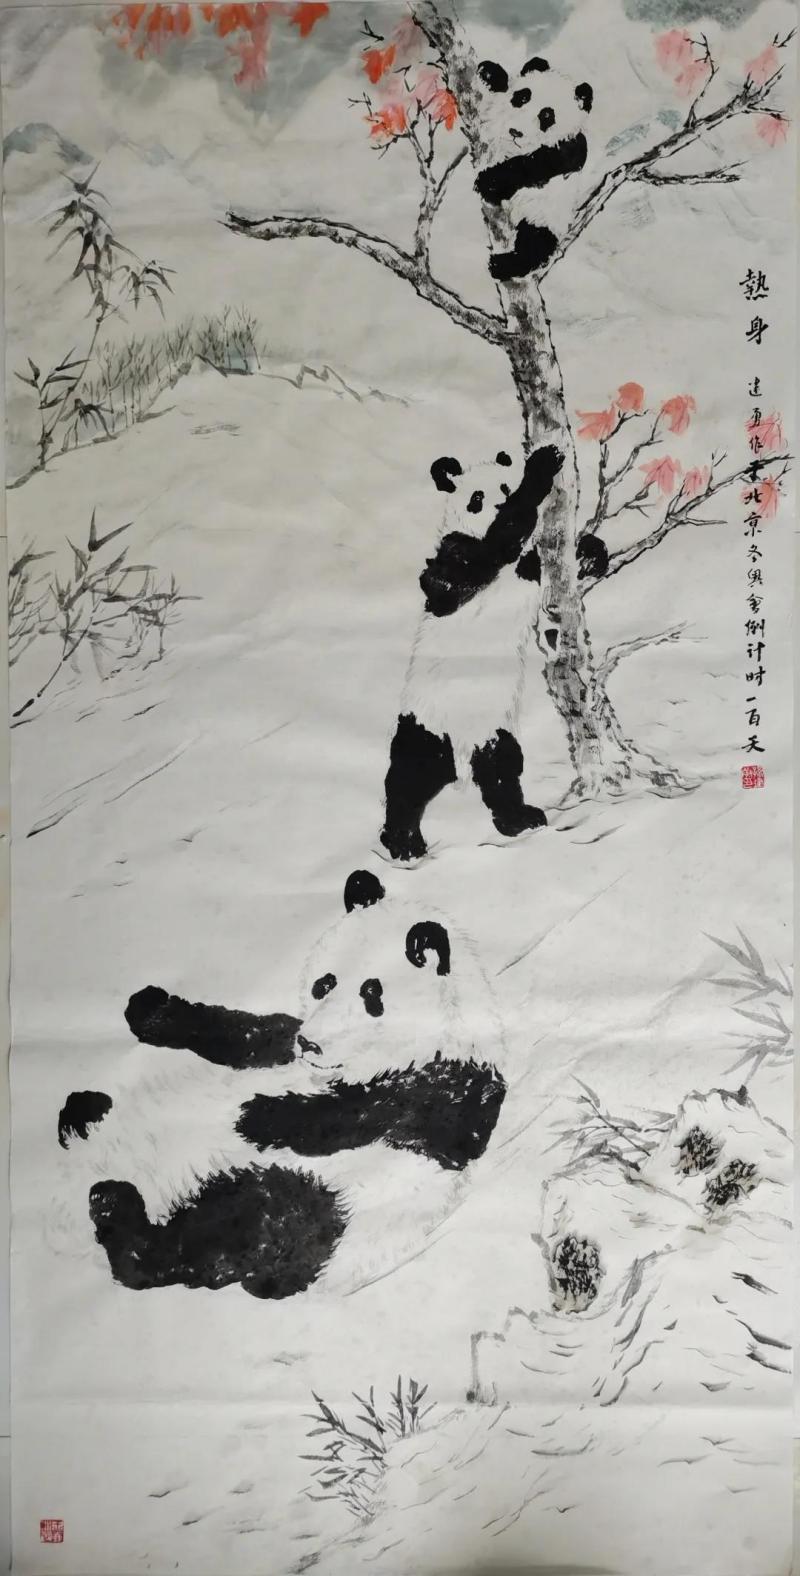 熱身
建勇作于北京冬奥會倒计时一百天